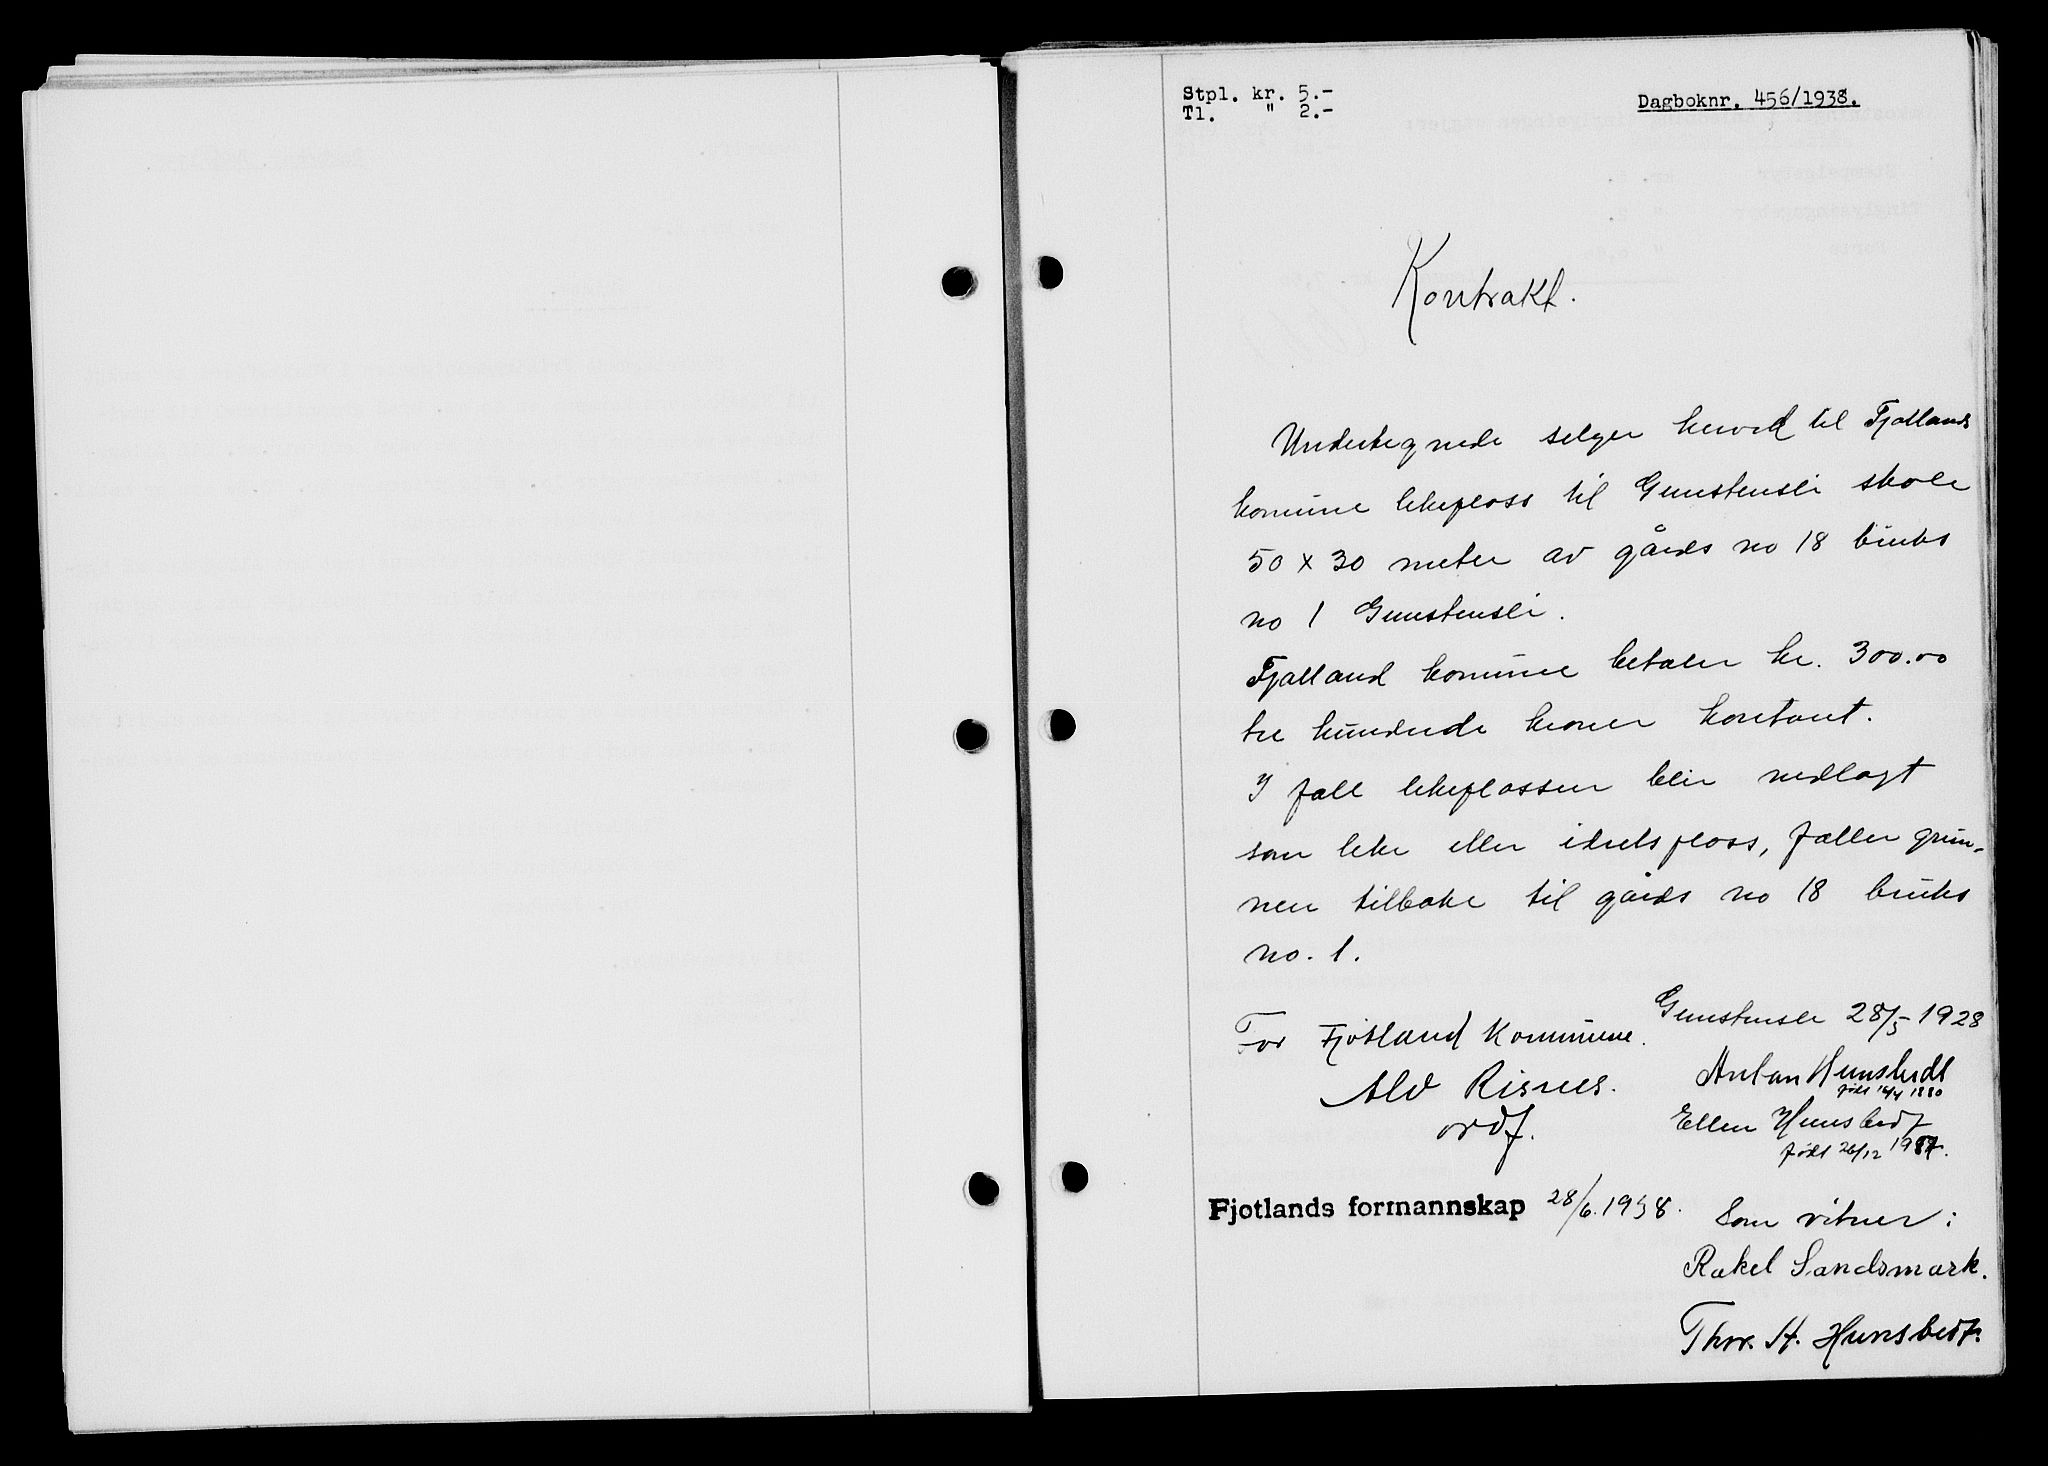 Stpl. kr. 5.-
Tl. " 2.-
Dagboknr. 456/1938.
Kontrakt.
Undertegnede selger herved til Fjotlands
komune lekeplass til Gunstensli skole
50 x 30 meter av gårds no 18 bruks
no 1 Gunstensli.
Fjotland komune betaler kr. 300.00
tre hundrede kroner kontant.
I fall lekeplassen blir nedlagt
som leke eller idretsplass, faller grun-
nen tilbake til gårds no 18 bruks
no. 1.
Gunstensli 28/5-1928
For Fjotland Kommune.
Alv Risnes.
ordf.
Anton Hunsbedt
født 1880
Ellen Hunsbedt
født 26/12
Fjotlands formannskap 28/6.1938.
Som vitner:
Rakel Sandsmark.
Thor. H. Hunsbedt.